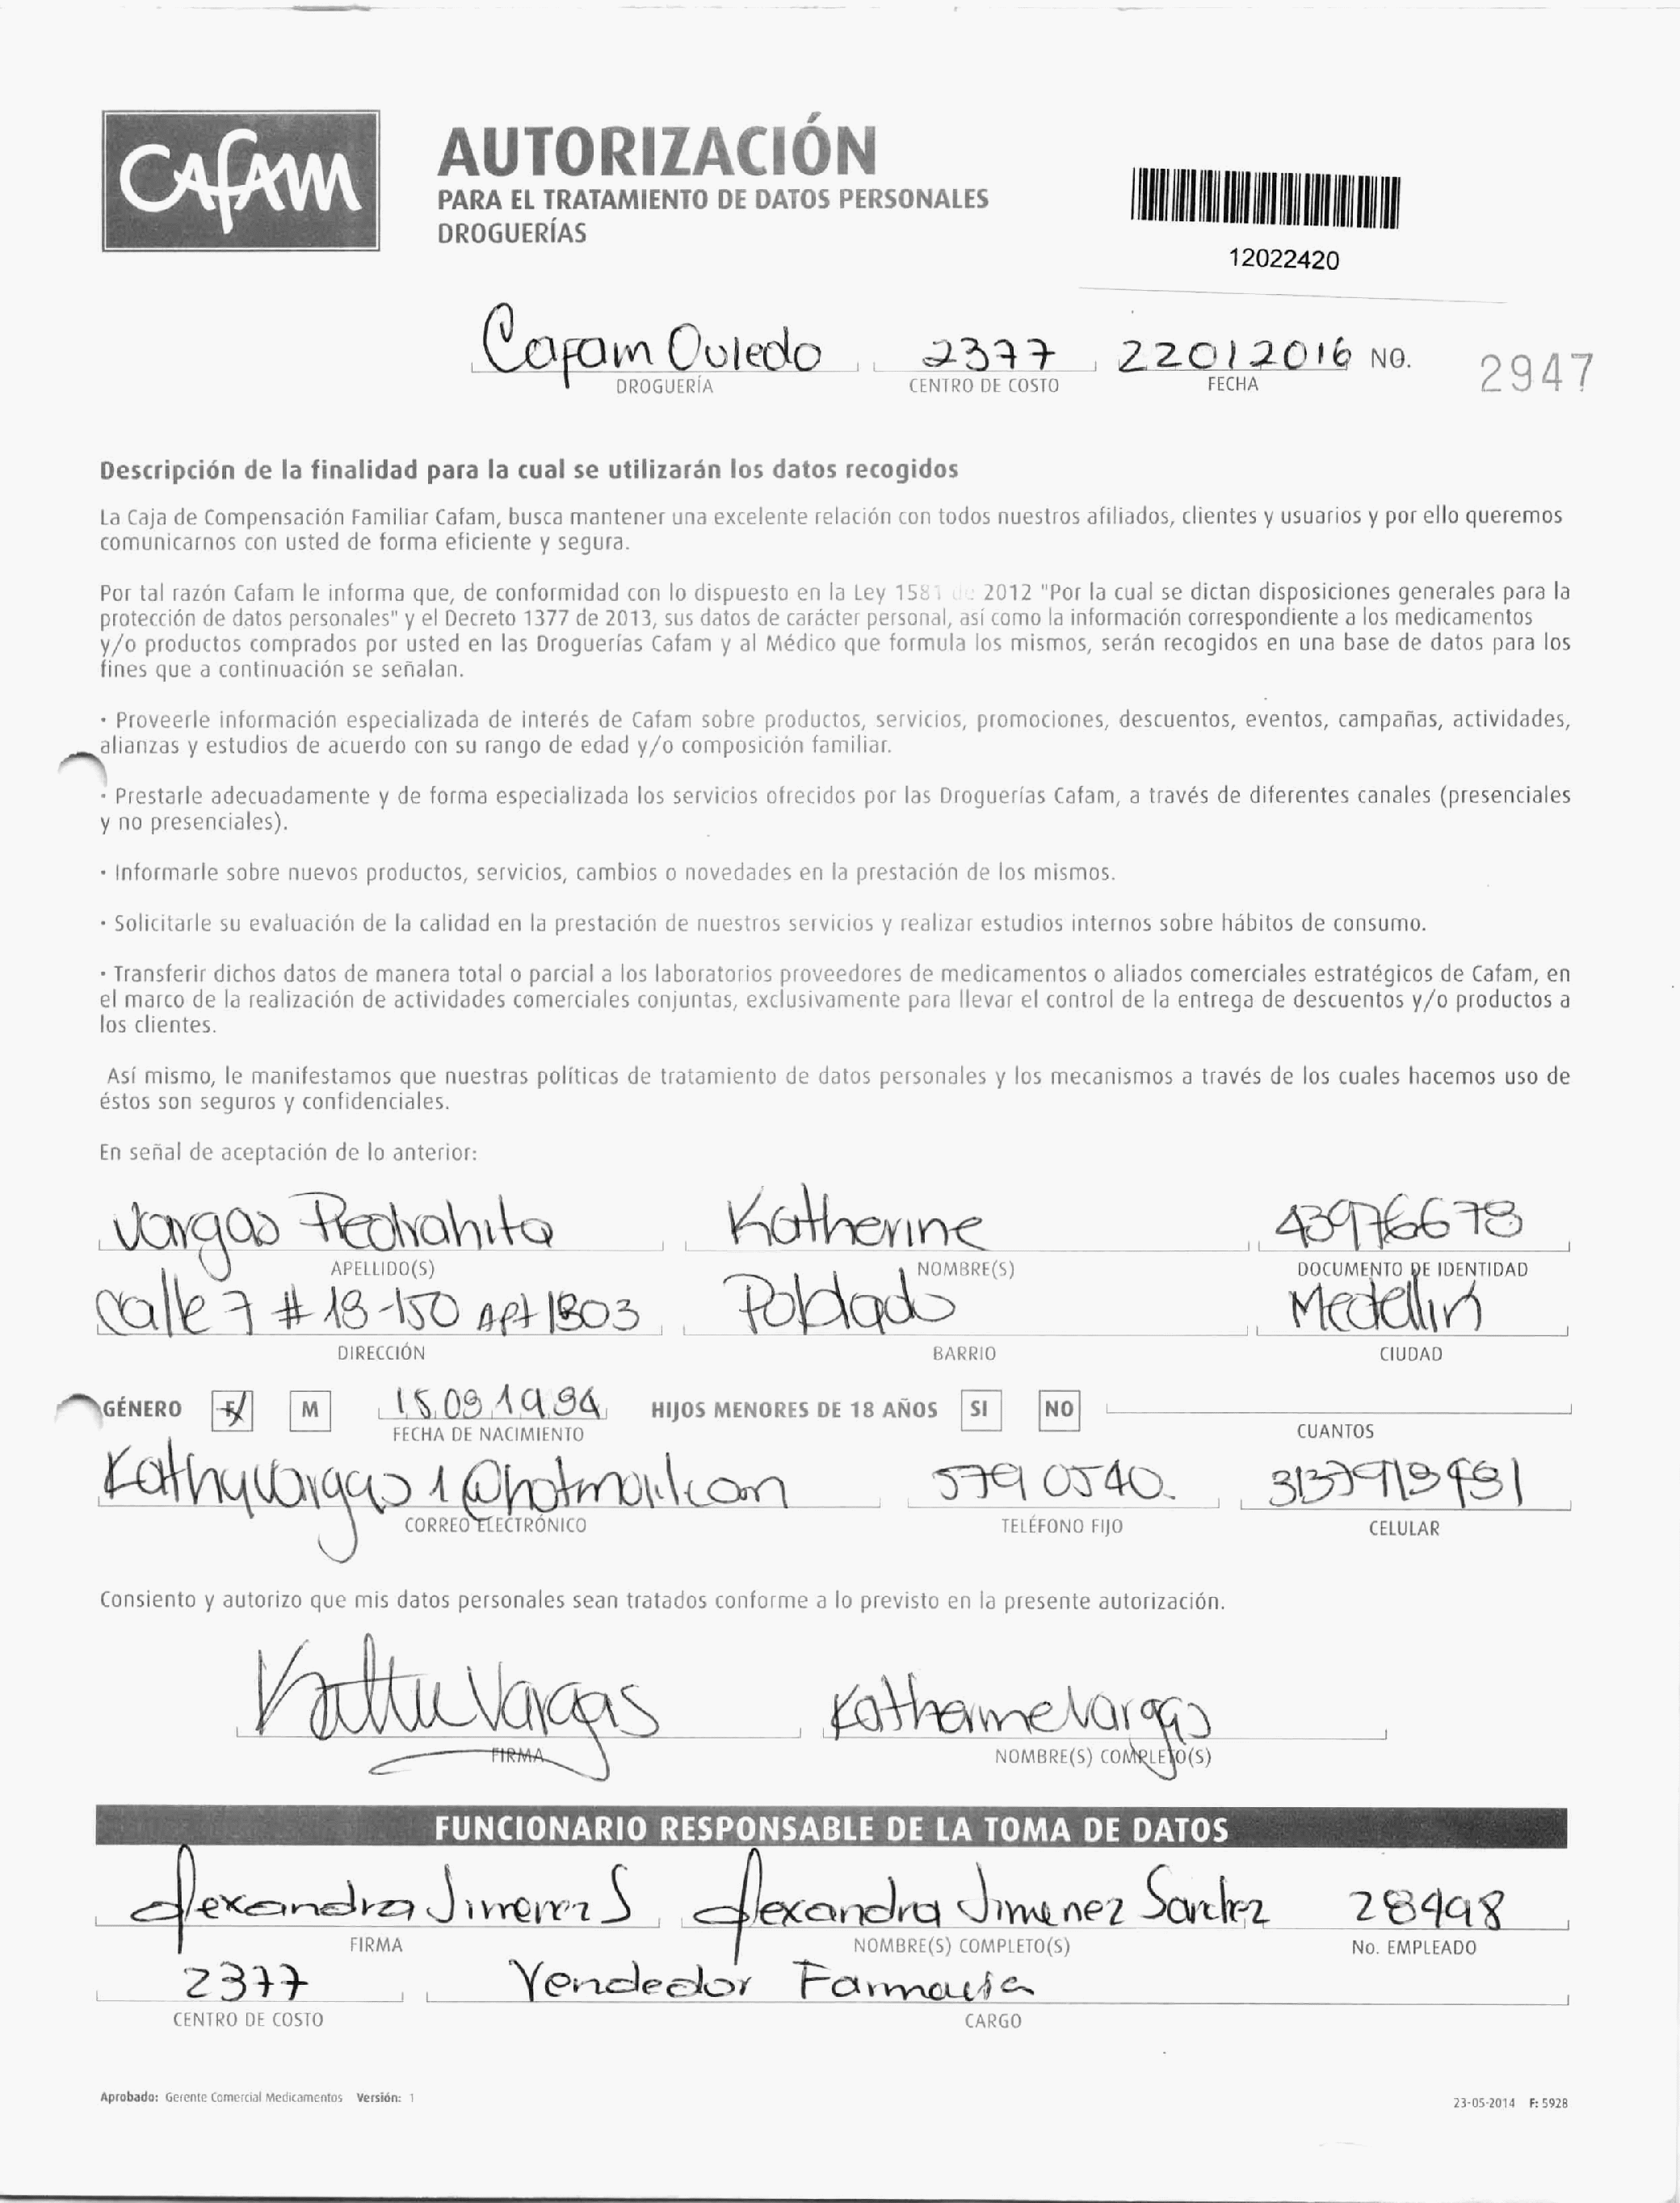 CAFAM
AUTORIZACIÓN
PARA EL TRATAMIENTO DE DATOS PERSONALES
DROGUERÍAS
12022420
Cafam Oviedo 2377 22012016 NO. 2947
DROGUERÍA CENTRO DE COSTO FECHA
Descripción de la finalidad para la cual se utilizarán los datos recogidos
La Caja de Compensación Familiar Cafam, busca mantener una excelente relación con todos nuestros afiliados, clientes y usuarios y por ello queremos
comunicarnos con usted de forma eficiente y segura.
Por tal razón Cafam le informa que, de conformidad con lo dispuesto en la Ley 1581 de 2012 "Por la cual se dictan disposiciones generales para la
protección de datos personales" y el Decreto 1377 de 2013, sus datos de carácter personal, así como la información correspondiente a los medicamentos
y/o productos comprados por usted en las Droguerías Cafam y al Médico que formula los mismos, serán recogidos en una base de datos para los
fines que a continuación se señalan.
· Proveerle información especializada de interés de Cafam sobre productos, servicios, promociones, descuentos, eventos, campañas, actividades,
alianzas y estudios de acuerdo con su rango de edad y/o composición familiar.
· Prestarle adecuadamente y de forma especializada los servicios ofrecidos por las Droguerías Cafam, a través de diferentes canales (presenciales
y no presenciales).
· Informarle sobre nuevos productos, servicios, cambios o novedades en la prestación de los mismos.
· Solicitarle su evaluación de la calidad en la prestación de nuestros servicios y realizar estudios internos sobre hábitos de consumo.
· Transferir dichos datos de manera total o parcial a los laboratorios proveedores de medicamentos o aliados comerciales estratégicos de Cafam, en
el marco de la realización de actividades comerciales conjuntas, exclusivamente para llevar el control de la entrega de descuentos y/o productos a
los clientes.
Así mismo, le manifestamos que nuestras políticas de tratamiento de datos personales y los mecanismos a través de los cuales hacemos uso de
éstos son seguros y confidenciales.
En señal de aceptación de lo anterior:
Vargas Piedrahita Katherine 43976678
APELLIDO(S) NOMBRE(S) DOCUMENTO DE IDENTIDAD
Calle 7 # 18-150 Apt 1303 Poblado Medellin
DIRECCIÓN BARRIO CIUDAD
GÉNERO F M HIJOS MENORES DE 18 AÑOS SI NO
FECHA DE NACIMIENTO CUANTOS
Kathyvargas1@hotmail.com 5790540
CORREO ELECTRÓNICO TELÉFONO FIJO CELULAR
Consiento y autorizo que mis datos personales sean tratados conforme a lo previsto en la presente autorización.
Vargas Katherine Vargas
FIRMA NOMBRE(S) COMPLETO(S)
FUNCIONARIO RESPONSABLE DE LA TOMA DE DATOS
Alexandra Jimenez S Alexandra Jimenez Sanchez 28498
FIRMA NOMBRE(S) COMPLETO(S) No. EMPLEADO
2377 Vendedor Farmacia
CENTRO DE COSTO CARGO
Aprobado: Gerente Comercial Medicamentos Versión: 1
23-05-2014 F: 5928